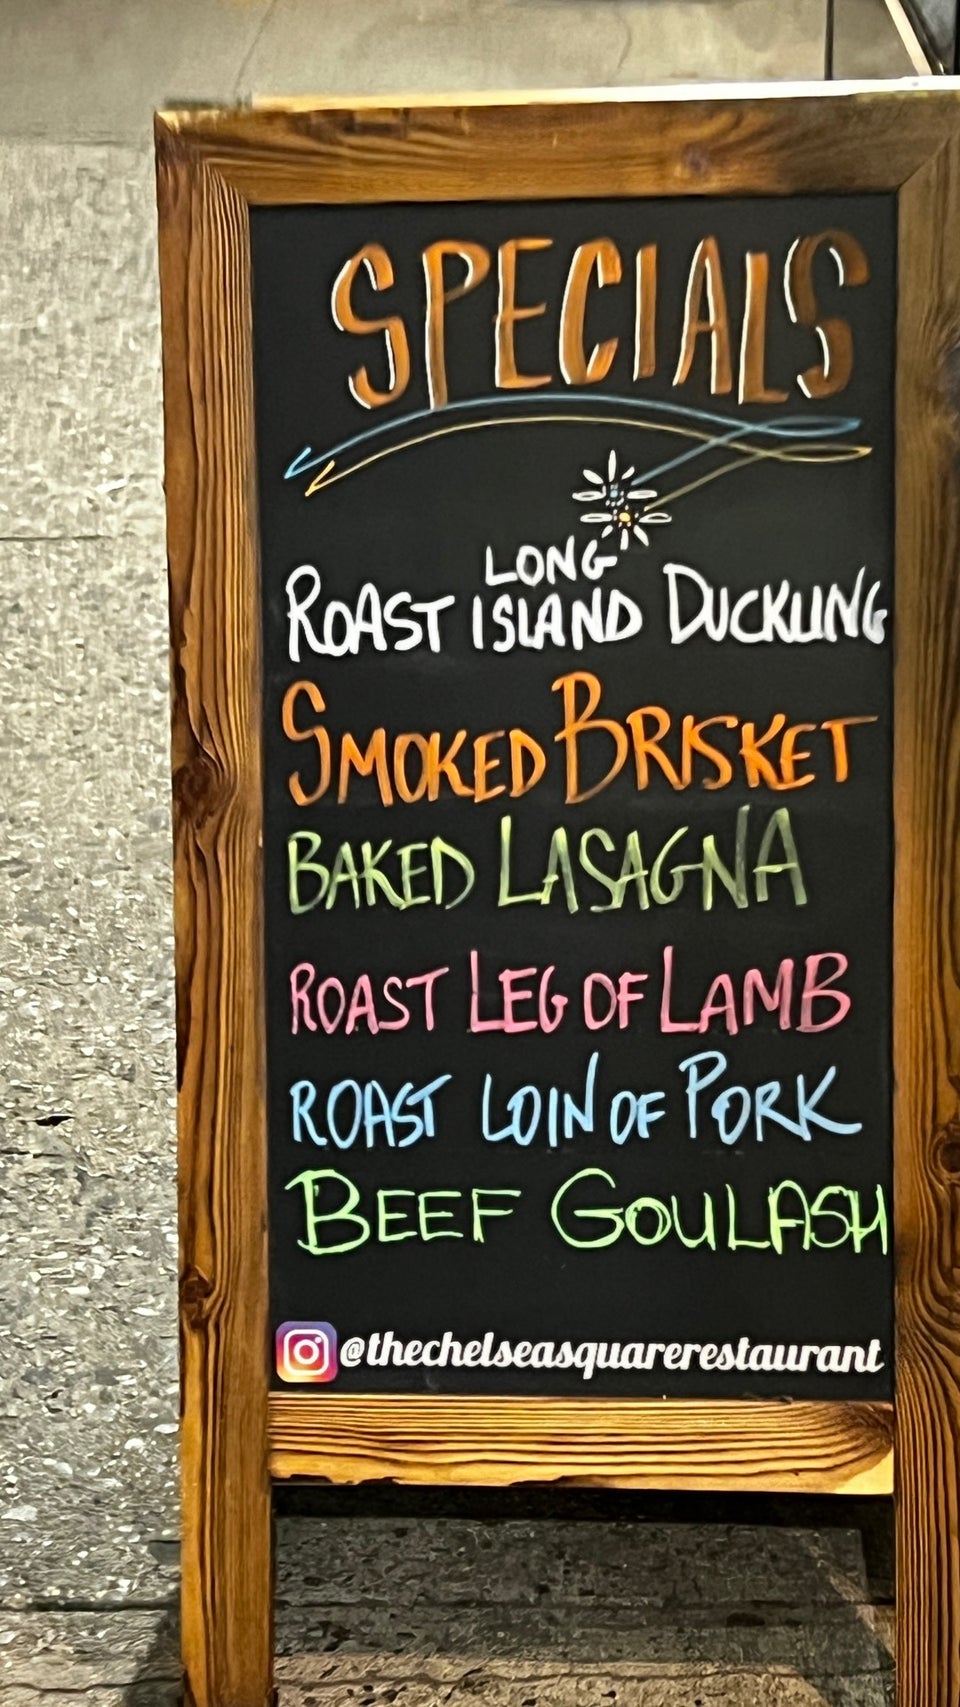 SPECIALS
ROAST LONG ISLAND DUCKLING
SMOKED BRISKET
BAKED LASAGNA
ROAST LEG OF LAMB
ROAST LOIN OF PORK
BEEF GOULASH
@thechelseasquarerestaurant